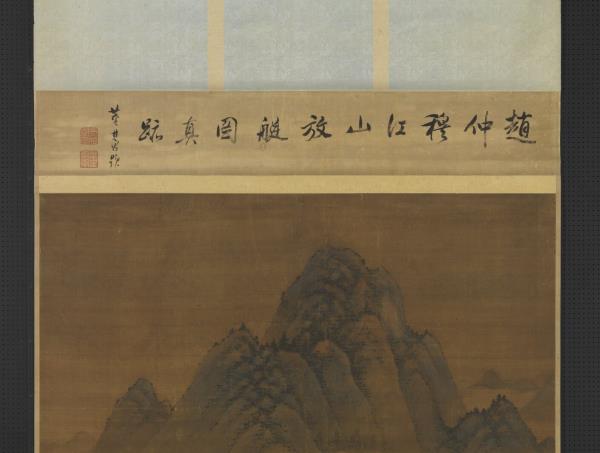 趙仲穆江山放艇图真跡
董其昌題